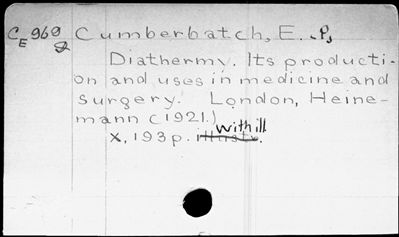 CE 969 Cumberbatch, E. P.,
Diathermy. Its producti-
on and uses in medicine and
surgery. London, Heine-
mann (1921.)
with ill
x, 193 p. illustr.